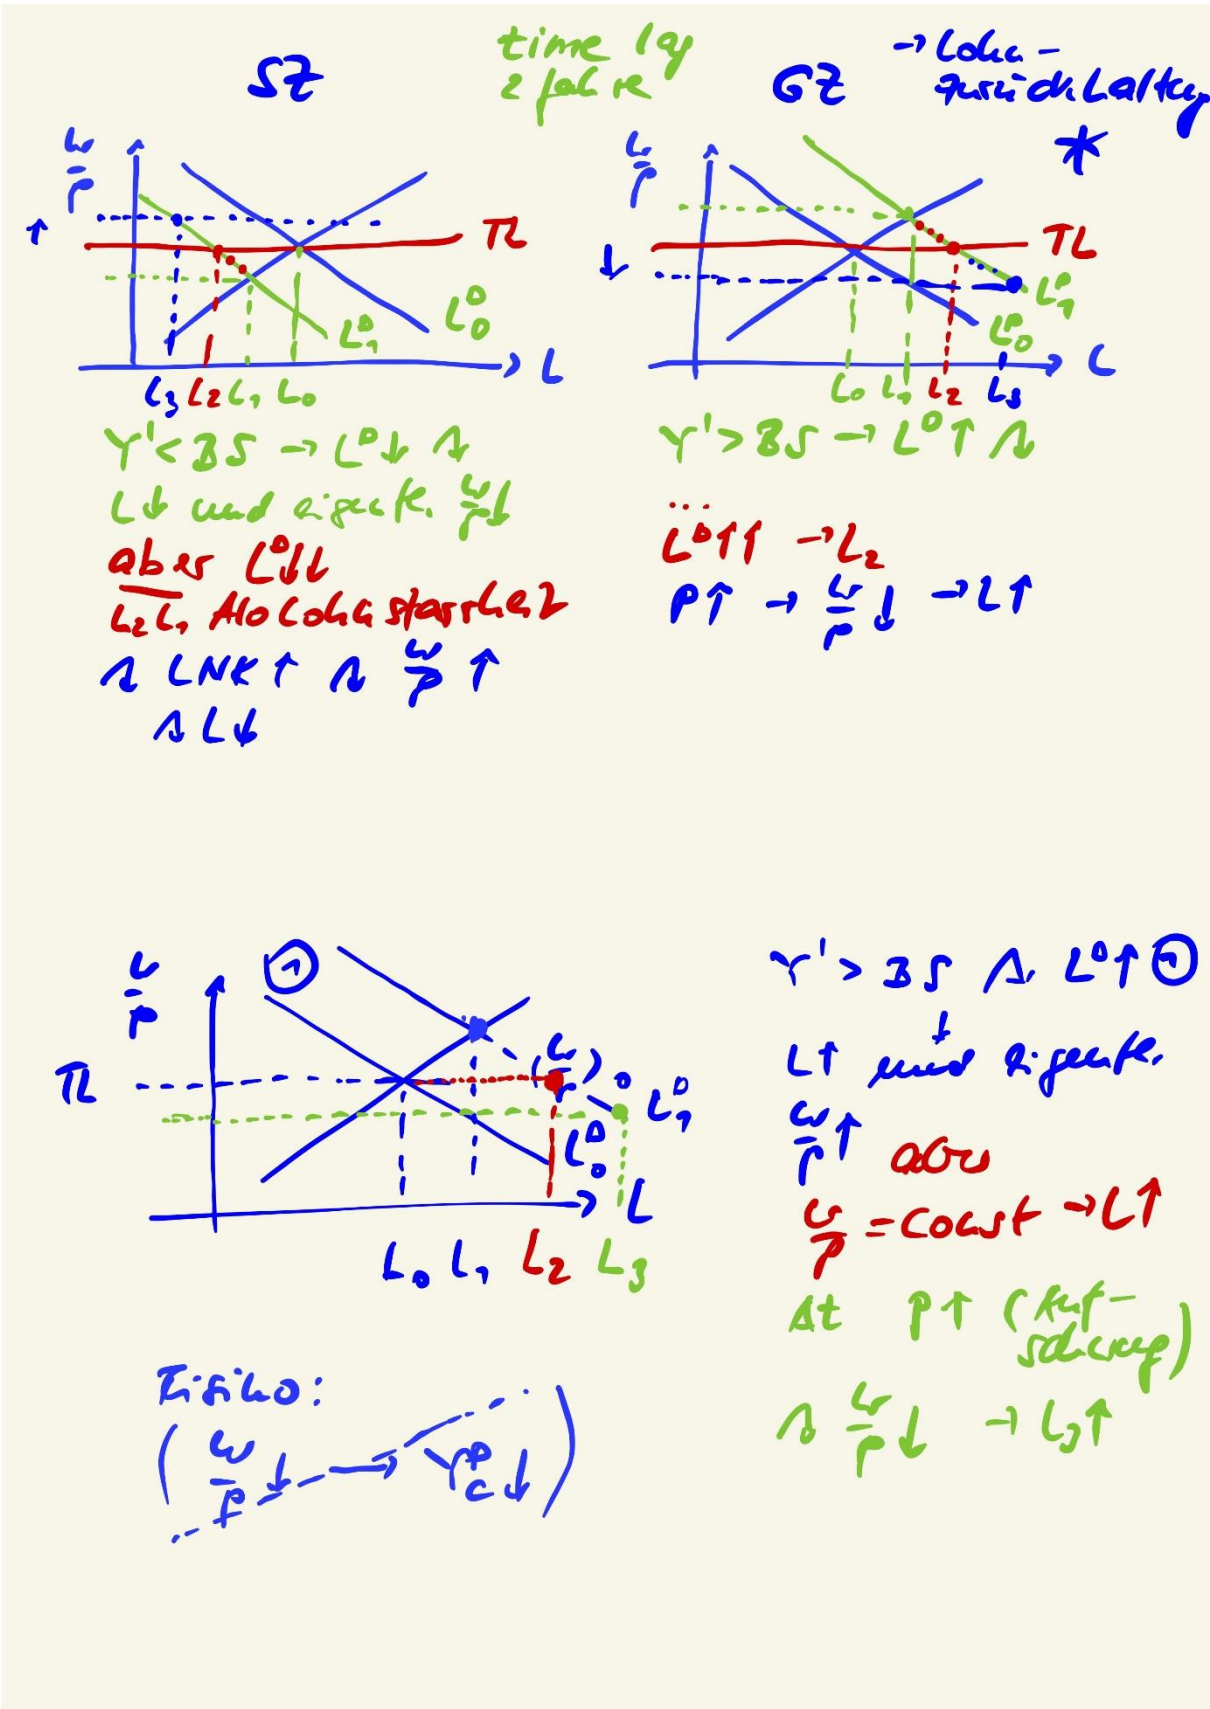 SZ
time lag
2 Jahre
GZ
→ Lohn-
zurückhaltung
*
w/p ↑
TL
L₀ᴰ
L₁ᴰ
L
L₃ L₂ L₁ L₀
w/p ↓
TL
L₁ᴰ
L₀ᴰ
L
L₀ L₁ L₂ L₃
Y' < BS → Lᴰ↓ ⇒
L↓ und eigentl. w/p ↓
aber Lᴰ↓↓
L₂L₁ Alo Lohnstarrheit
⇒ LNK ↑ ⇒ w/p ↑
⇒ L↓
Y' > BS → Lᴰ↑ ⇒
...
Lᴰ↑↑ → L₂
P↑ → w/p ↓ → L↑
w/p
①
TL
(w/p)₀
L₁ᴰ
L₀ᴰ
L
L₀ L₁ L₂ L₃
Y' > BS ⇒ Lᴰ↑ ①
↓
L↑ und eigentl.
w/p ↑ aber
w/p = const → L↑
Δt p↑ (Auf-
schwung)
⇒ w/p ↓ → L₃↑
Risiko:
( w/p ↓ → Y_Cᴰ ↓ )